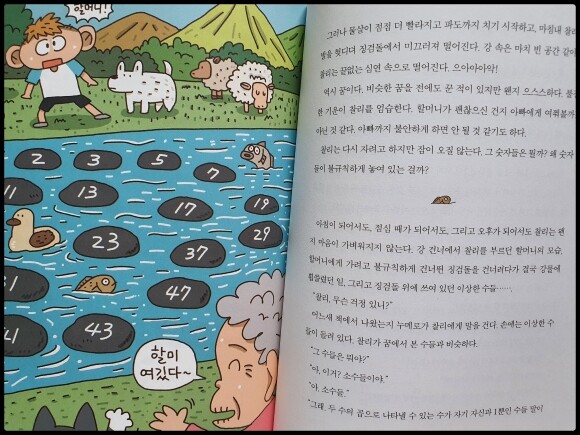 할머니!
2
3
5
7
11
13
17
19
23
29
37
47
41
43
할미
여깄다~
그러나 물살이 점점 더 빨라지고 파도까지 치기 시작하고, 마침내 찰리
발을 헛디뎌 징검돌에서 미끄러져 떨어진다. 강 속은 마치 빈 공간 같아
찰리는 끝없는 심연 속으로 떨어진다. 으아아아악!
역시 꿈이다. 비슷한 꿈을 전에도 꾼 적이 있지만 왠지 으스스하다.
한 기운이 찰리를 엄습한다. 할머니가 괜찮으신 건지 아빠에게 여쭤볼까
아닌 것 같다. 아빠까지 불안하게 하면 안 될 것 같기도 하다.
찰리는 다시 자려고 하지만 잠이 오질 않는다. 그 숫자들은 뭘까? 왜 숫자
들이 불규칙하게 놓여 있는 걸까?
아침이 되어서도, 점심 때가 되어서도, 그리고 오후가 되어서도 찰리는 왠
지 마음이 가벼워지지 않는다. 강 건너에서 찰리를 부르던 할머니의 모습,
할머니에게 가려고 불규칙하게 건너뛴 징검돌을 건너려다가 결국 강물에
휩쓸렸던 일, 그리고 징검돌 위에 쓰여 있던 이상한 수들…….
"찰리, 무슨 걱정 있니?"
어느새 책에서 나왔는지 누메로가 찰리에게 말을 건다. 손에는 이상한 수
들이 들려 있다. 찰리가 꿈에서 본 수들과 비슷하다.
"그 수들은 뭐야?"
"아, 이거? 소수들이야."
"아, 소수들."
"그래, 두 수의 곱으로 나타낼 수 있는 수가 자기 자신과 1뿐인 수들 말이